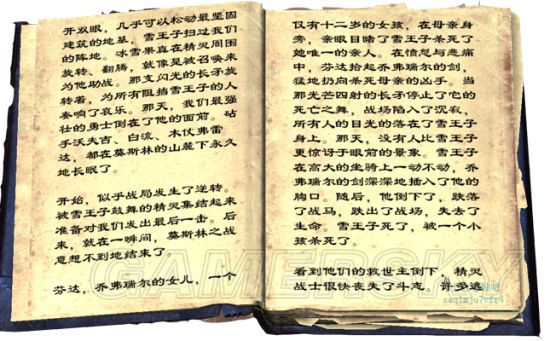 开双眼，几乎可以松动最坚固
建筑的地基，雪王子扫过我们
的阵地。冰雪果真在精灵周围
旋转、翻腾，就像是被召唤来
为他助战。那支闪光的长矛旋
转着，为所有阻挡雪王子的人
奏响了哀乐。那天，我们最强
壮的勇士倒在了他的面前。砧
手沃夫吉、白流、木仗弗雷
达，都在莫斯林的山麓下永久
地长眠了。
开始，似乎战局发生了逆转。
被雪王子鼓舞的精灵集结起来
准备对我们发出最后一击。后
来，就在一瞬间，莫斯林之战
意想不到地结束了。
芬达，乔弗瑞尔的女儿，一个
仅有十二岁的女孩，在母亲身
旁，亲眼目睹了雪王子杀死了
她唯一的亲人。在愤怒与悲痛
中，芬达拾起乔弗瑞尔的剑，
猛地扔向杀死母亲的凶手。当
那光芒四射的长矛停止了它的
死亡之舞，战场陷入了沉寂，
所有人的目光的落在了雪王子
身上。那天，没有人比雪王子
更惊讶于眼前的景象。雪王子
在高大的坐骑上一动不动，乔
弗瑞尔的剑深深地插入了他的
胸口。随后，他倒下了，跌落
了战马，跌出了战场，失去了
生命。雪王子死了，被一个小
孩杀死了。
看到他们的救世主倒下，精灵
战士很快丧失了斗志。许多逃
GAMERSKY
zaq1mju7vfr4